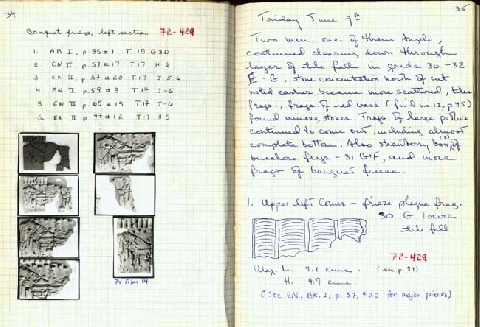 34
Banquet frieze, left section 72-429
1. AB I, p. 35 # 1 T. 19 G 30
2. CN II p. 57 # 17 T 17
3. CN II, p. 57 # 20 T. 17
4. EN II p. 59 # 3 T 17
5. EN II p. 65 # 19 T 17
6. EN II p. 77 # 12 T 17
35
Tuesday June
Two men, one of them Angelo,
continued clearing down through
layer of tile fall in grids 30-32
F - G. The concentration north of
earlier became more scattered, tiles
frags., frags of red vase (find no. 12, p 45)
found among stones. Frags of large pithos
continued to come out, including almost
complete bottom. Also strawberry box of
bucchero frags - 31 G+F, and more
frags of banquet frieze.
1. Upper left Corner - frieze plaque frag.
30 G lower
tile fall
72-429
Max L. 9.1 cms. (
H. 4.9 cms.
(SEE EN, BK. 2, p. 57, for major pieces)